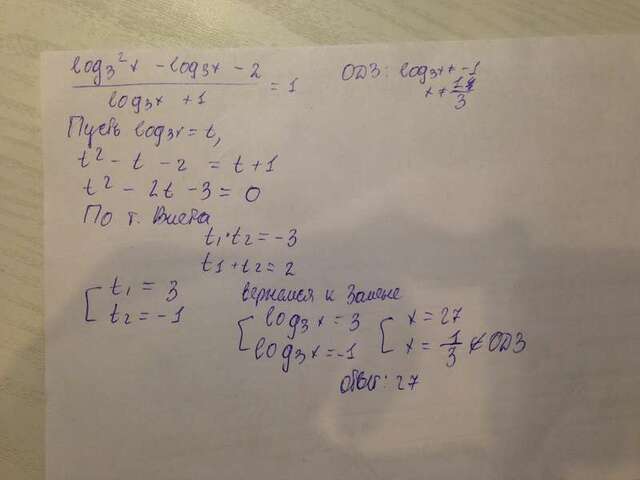 log₃²x - log₃x - 2 / log₃x + 1 = 1
ОДЗ: log₃x ≠ -1
x ≠ 1/3
Пусть log₃x = t,
t² - t - 2 = t + 1
t² - 2t - 3 = 0
По т. Виета
t₁·t₂ = -3
t₁ + t₂ = 2
[ t₁ = 3
t₂ = -1
вернемся к замене
[ log₃x = 3
log₃x = -1
[ x = 27
x = 1/3 ∉ ОДЗ
ответ: 27